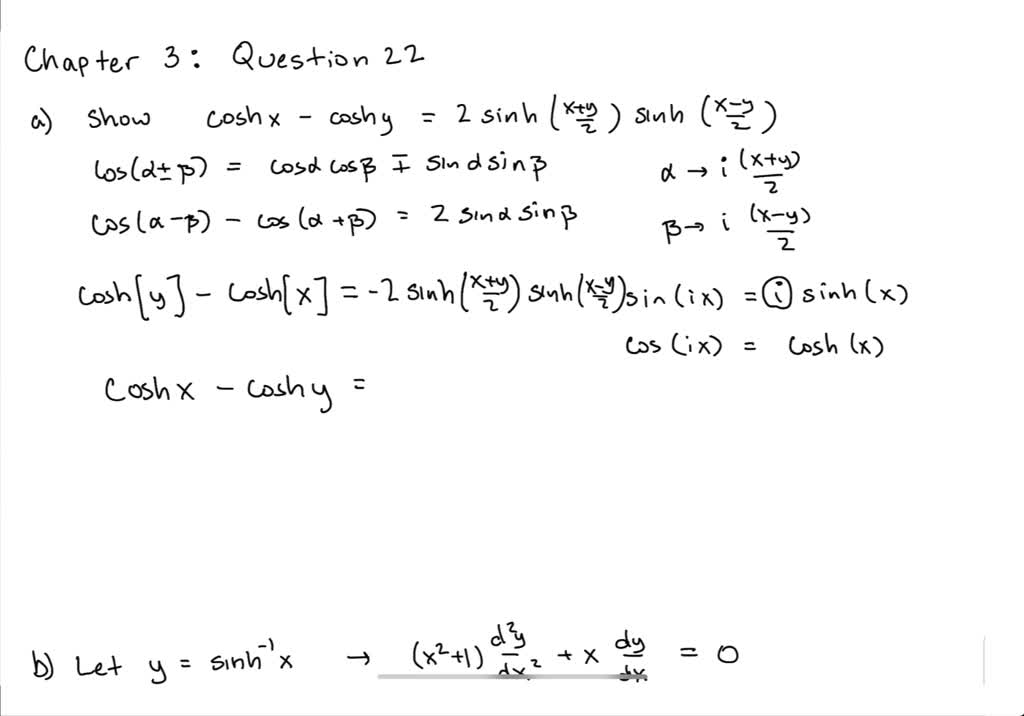 Chapter 3: Question 22
a) Show cosh x − cosh y = 2 sinh (x+y/2) sinh (x−y/2)
cos(α±β) = cosα cosβ ∓ sinα sinβ α → i (x+y)/2
cos(α−β) − cos(α+β) = 2 sinα sinβ β → i (x−y)/2
cosh[y] − cosh[x] = −2 sinh(x+y/2) sinh(x−y/2) sin(ix) = i sinh(x)
cos(ix) = cosh(x)
cosh x − cosh y =
b) Let y = sinh⁻¹x → (x²+1) d²y/dx² + x dy/dx = 0